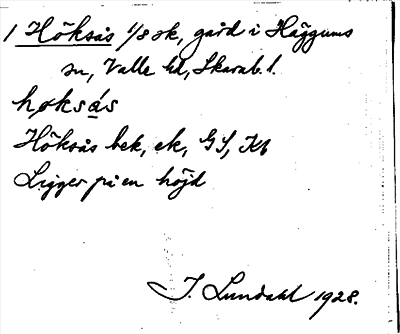 1 Höksås 1/8 sk, gård i Häggums
sn, Valle hd, Skarab. l.
høksás
Höksås bek, ek, GS, Kb
Ligger på en höjd
J. Lundahl 1928.